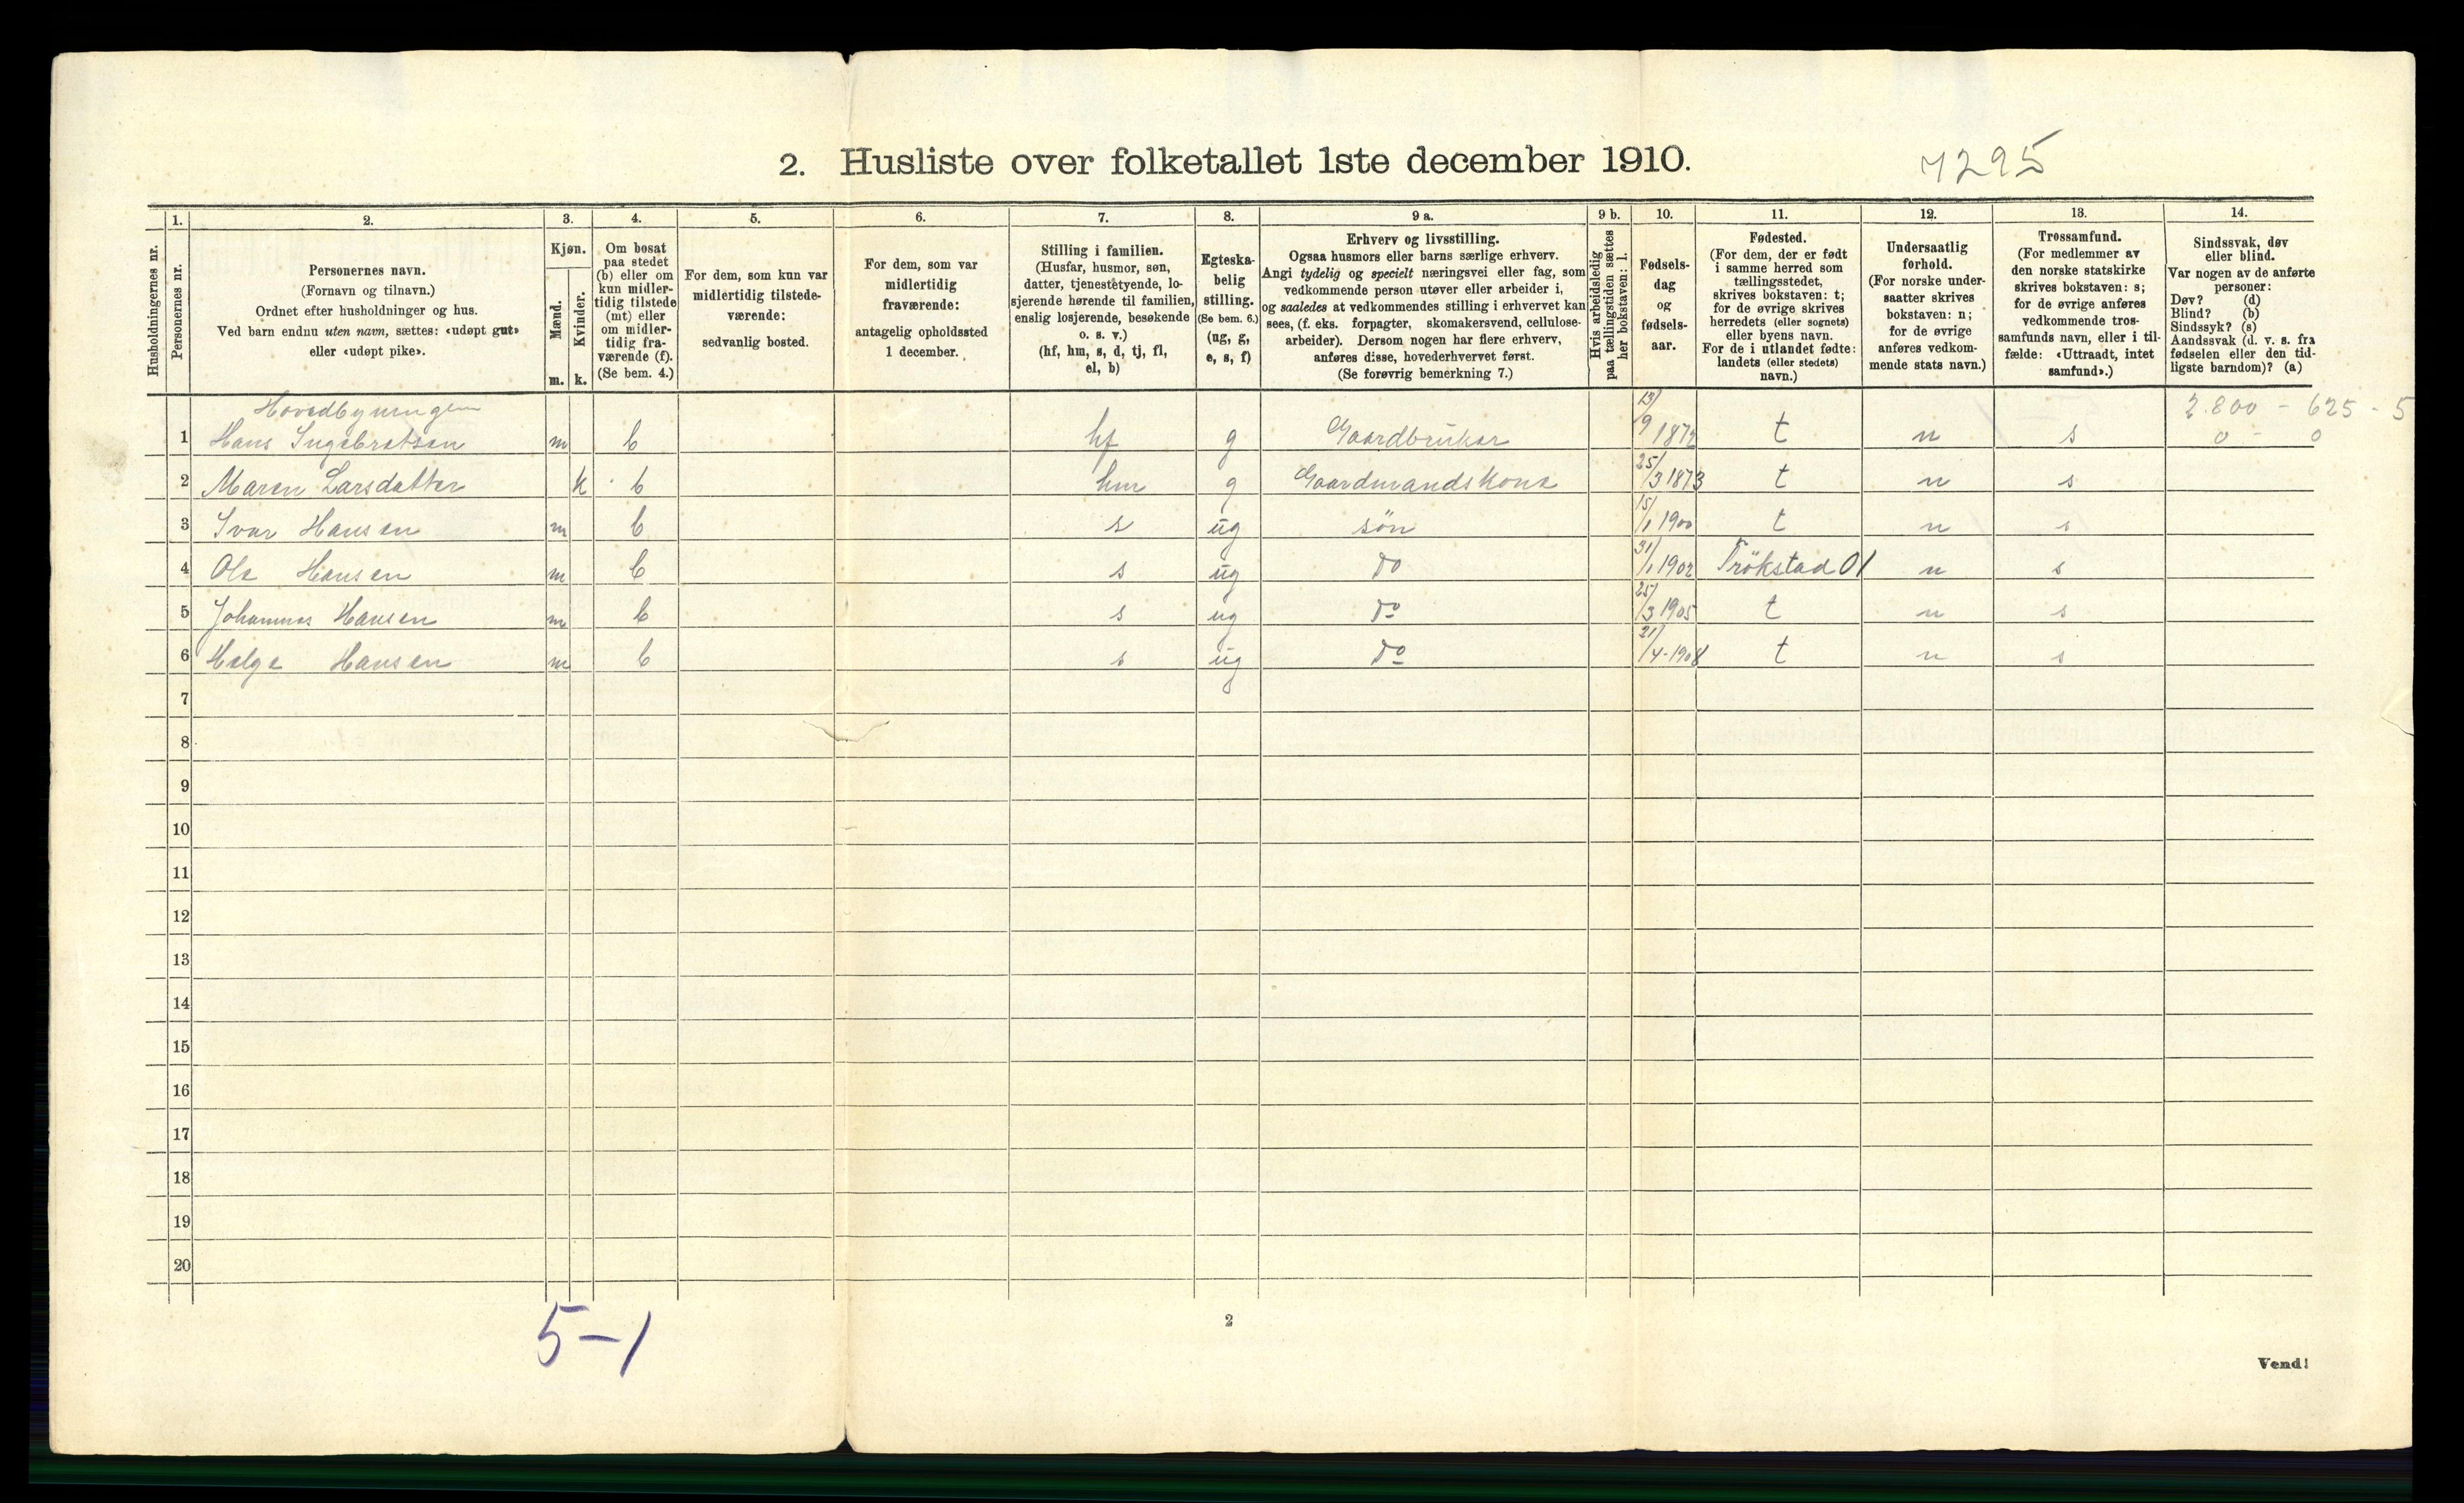 2. Husliste over folketallet 1ste december 1910.
7295
Husholdningernes nr.
1.
Personernes nr.
2.
Personernes navn.
(Fornavn og tilnavn.)
Ordnet efter husholdninger og hus.
Ved barn endnu uten navn, sættes: «udøpt gut»
eller «udøpt pike».
3.
Kjøn.
Mænd.
Kvinder.
m. k.
4.
Om bosat
paa stedet
(b) eller om
kun midler-
tidig tilstede
(mt) eller
om midler-
tidig fra-
værende (f).
(Se bem. 4.)
5.
For dem, som kun var
midlertidig tilstede-
værende:
sedvanlig bosted.
6.
For dem, som var
midlertidig
fraværende:
antagelig opholdssted
1 december.
7.
Stilling i familien.
(Husfar, husmor, søn,
datter, tjenestetyende, lo-
sjerende hørende til familien,
enslig losjerende, besøkende
o. s. v.)
(hf, hm, s, d, tj, fl,
el, b)
8.
Egteska-
belig
stilling.
(Se bem. 6.)
(ug, g,
e, s, f)
9 a.
Erhverv og livsstilling.
Ogsaa husmors eller barns særlige erhverv.
Angi tydelig og specielt næringsvei eller fag, som
vedkommende person utøver eller arbeider i,
og saaledes at vedkommendes stilling i erhvervet kan
sees, (f. eks. forpagter, skomakersvend, cellulose-
arbeider). Dersom nogen har flere erhverv,
anføres disse, hovederhvervet først.
(Se forøvrig bemerkning 7.)
9 b.
Hvis arbeidsledig
paa tællingstiden sættes
her bokstaven: l.
10.
Fødsels-
dag
og
fødsels-
aar.
11.
Fødested.
(For dem, der er født
i samme herred som
tællingsstedet,
skrives bokstaven: t;
for de øvrige skrives
herredets (eller sognets)
eller byens navn.
For de i utlandet fødte:
landets (eller stedets)
navn.)
12.
Undersaatlig
forhold.
(For norske under-
saatter skrives
bokstaven: n;
for de øvrige
anføres vedkom-
mende stats navn.)
13.
Trossamfund.
(For medlemmer av
den norske statskirke
skrives bokstaven: s;
for de øvrige anføres
vedkommende tros-
samfunds navn, eller i til-
fælde: «Uttraadt, intet
samfund».)
14.
Sindssvak, døv
eller blind.
Var nogen av de anførte
personer:
Døv? (d)
Blind? (b)
Sindssyk? (s)
Aandssvak (d. v. s. fra
fødselen eller den tid-
ligste barndom)? (a)
Hovedbyningen
2.800 - 625 - 5
1 Hans Ingebretsen m b hf g Gaardbruker 13/9 1872 t n s 0 - 0
2 Maren Larsdatter k b hm g Gaardmandskone 25/3 1873 t n s
3 Ivar Hansen m b s ug søn 15/1 1900 t n s
4 Ole Hansen m b s ug do 31/1 1902 Trökstad 01 n s
5 Johannes Hansen m b s ug do 25/3 1905 t n s
6 Helge Hansen m b s ug do 21/4-1908 t n s
7
8
9
10
11
12
13
14
15
16
17
18
19
20
5-1
2
Vend!